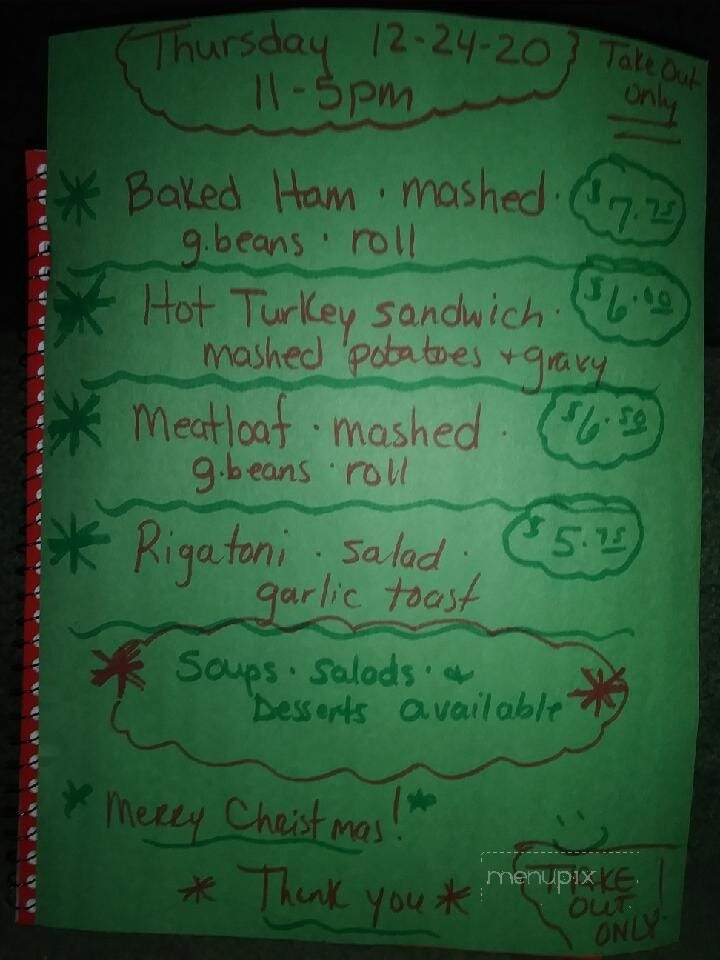 Thursday 12-24-20
11-5pm
Take Out
only
Baked Ham · mashed · $7.75
g.beans · roll
Hot Turkey sandwich · $6.60
mashed potatoes + gravy
Meatloaf · mashed · $6.50
g.beans · roll
Rigatoni · salad · $5.75
garlic toast
Soups · Salads · &
Desserts available
Merry Christmas!
Thank you
menupix
TAKE
OUT
ONLY